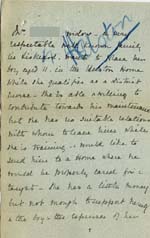 Mr
respectable well known family
boy aged 11. in the Hoxton Home
while she qualifies as a district
nurse. She is able & willing to
contribute towards his maintenance
but she has no suitable relations
with whom to leave him while
she is training & would like to
send him to a Home where he
would be properly cared for &
taught. She has a little money
but not enough to support herself
& the boy & the expenses of her